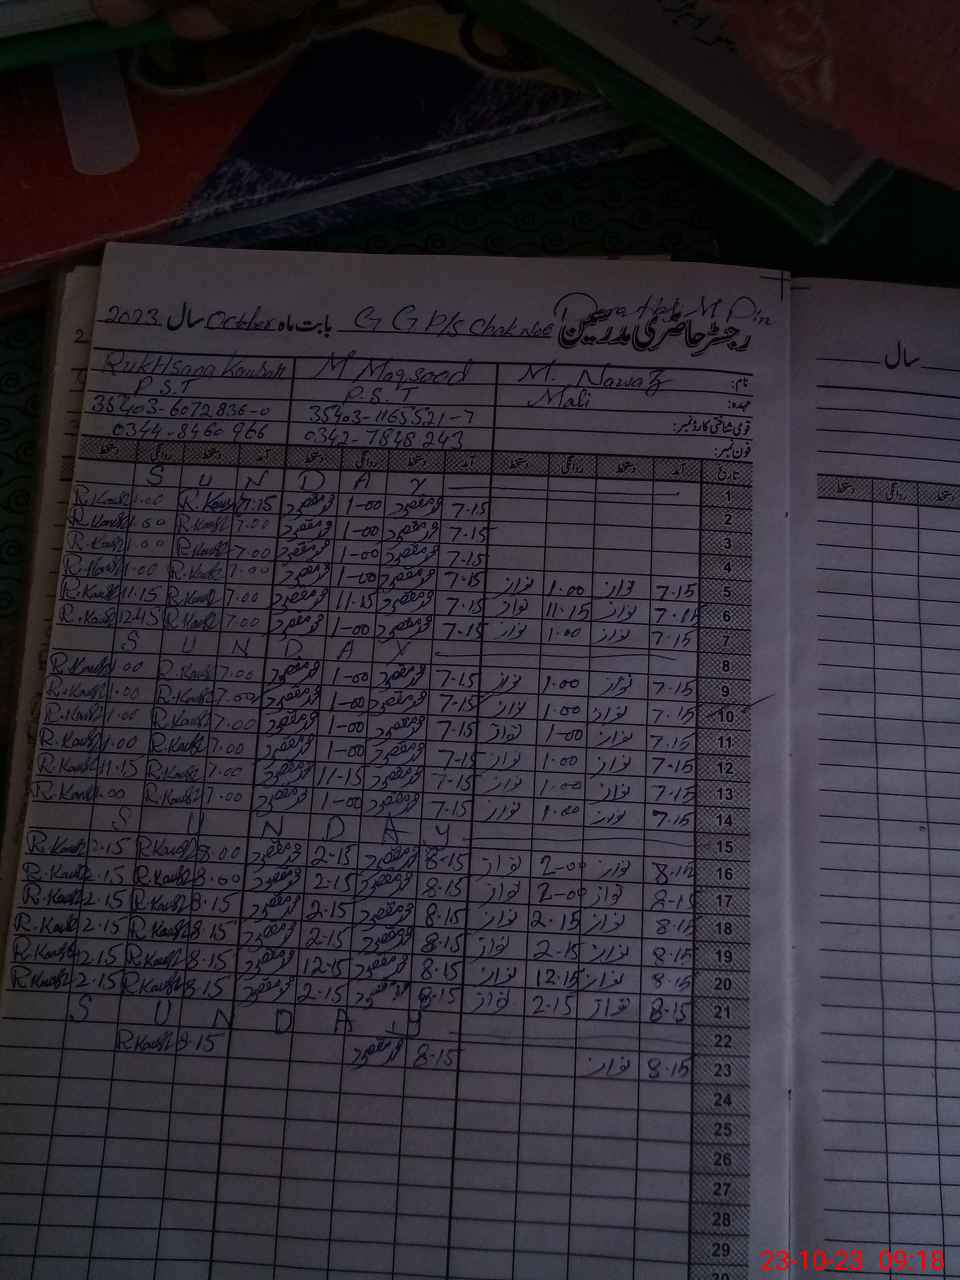 رجسٹر حاضری مدرسین G G P/S Chak No بابت ماہ October سال 2023
سال
نام: M. Nawaz M Maqsood Rukhsana Kausar
عہدہ: Mali P.S.T P.S.T
قومی شناختی کارڈ نمبر: 35403-1165521-7 35403-6072836-0
فون نمبر: 0342-7848243 0344-8460966
تاریخ آمد دستخط روانگی دستخط آمد دستخط روانگی دستخط آمد دستخط روانگی دستخط
دستخط روانگی دستخط
1 S U N D A Y
2 7.15 محمد مقصود 1-00 محمد مقصود 7.15 R.Kausar 1.00 R.Kausar
3 7.15 محمد مقصود 1-00 محمد مقصود 7.00 R.Kausar 1.00 R.Kausar
4 7.15 محمد مقصود 1-00 محمد مقصود 7.00 R.Kausar 1.00 R.Kausar
5 7.15 نواز 1.00 نواز 7.15 محمد مقصود 1-00 محمد مقصود 7.00 R.Kausar 1.00 R.Kausar
6 7.15 نواز 11.15 نواز 7.15 محمد مقصود 11.15 محمد مقصود 7.00 R.Kausar 11.15 R.Kausar
7 7.15 نواز 1.00 نواز 7.15 محمد مقصود 1-00 محمد مقصود 7.00 R.Kausar 12.45 R.Kausar
8 S U N D A Y
9 7.15 نواز 1.00 نواز 7.15 محمد مقصود 1-00 محمد مقصود 7.00 R.Kausar 1.00 R.Kausar
10 7.15 نواز 1.00 نواز 7.15 محمد مقصود 1-00 محمد مقصود 7.00 R.Kausar 1.00 R.Kausar
11 7.15 نواز 1-00 نواز 7.15 محمد مقصود 1-00 محمد مقصود 7.00 R.Kausar 1.00 R.Kausar
12 7.15 نواز 1.00 نواز 7-15 محمد مقصود 1-00 محمد مقصود 7.00 R.Kausar 1.00 R.Kausar
13 7.15 نواز 1.00 نواز 7-15 محمد مقصود 11-15 محمد مقصود 7.00 R.Kausar 11.15 R.Kausar
14 7.15 نواز 1.00 نواز 7.15 محمد مقصود 1-00 محمد مقصود 7.00 R.Kausar .00 R.Kausar
15 S U N D A Y
16 8.15 نواز 2-00 نواز 8-15 محمد مقصود 2-15 محمد مقصود 8.00 R.Kausar 2.15 R.Kausar
17 8.15 نواز 2-00 نواز 8.15 محمد مقصود 2.15 محمد مقصود 8.00 R.Kausar 2.15 R.Kausar
18 8.15 نواز 2.15 نواز 8.15 محمد مقصود 2.15 محمد مقصود 8.15 R.Kausar 2.15 R.Kausar
19 8.15 نواز 2.15 نواز 8.15 محمد مقصود 2-15 محمد مقصود 8.15 R.Kausar 2.15 R.Kausar
20 8.15 نواز 12.15 نواز 8.15 محمد مقصود 12.15 محمد مقصود 8.15 R.Kausar 12.15 R.Kausar
21 8.15 نواز 2.15 نواز 8.15 محمد مقصود 2.15 محمد مقصود 8.15 R.Kausar 2.15 R.Kausar
22 S U N D A Y
23 8.15 نواز 8.15 محمد مقصود 8.15 R.Kausar
24
25
26
27
28
29
30
23-10-23 09:18